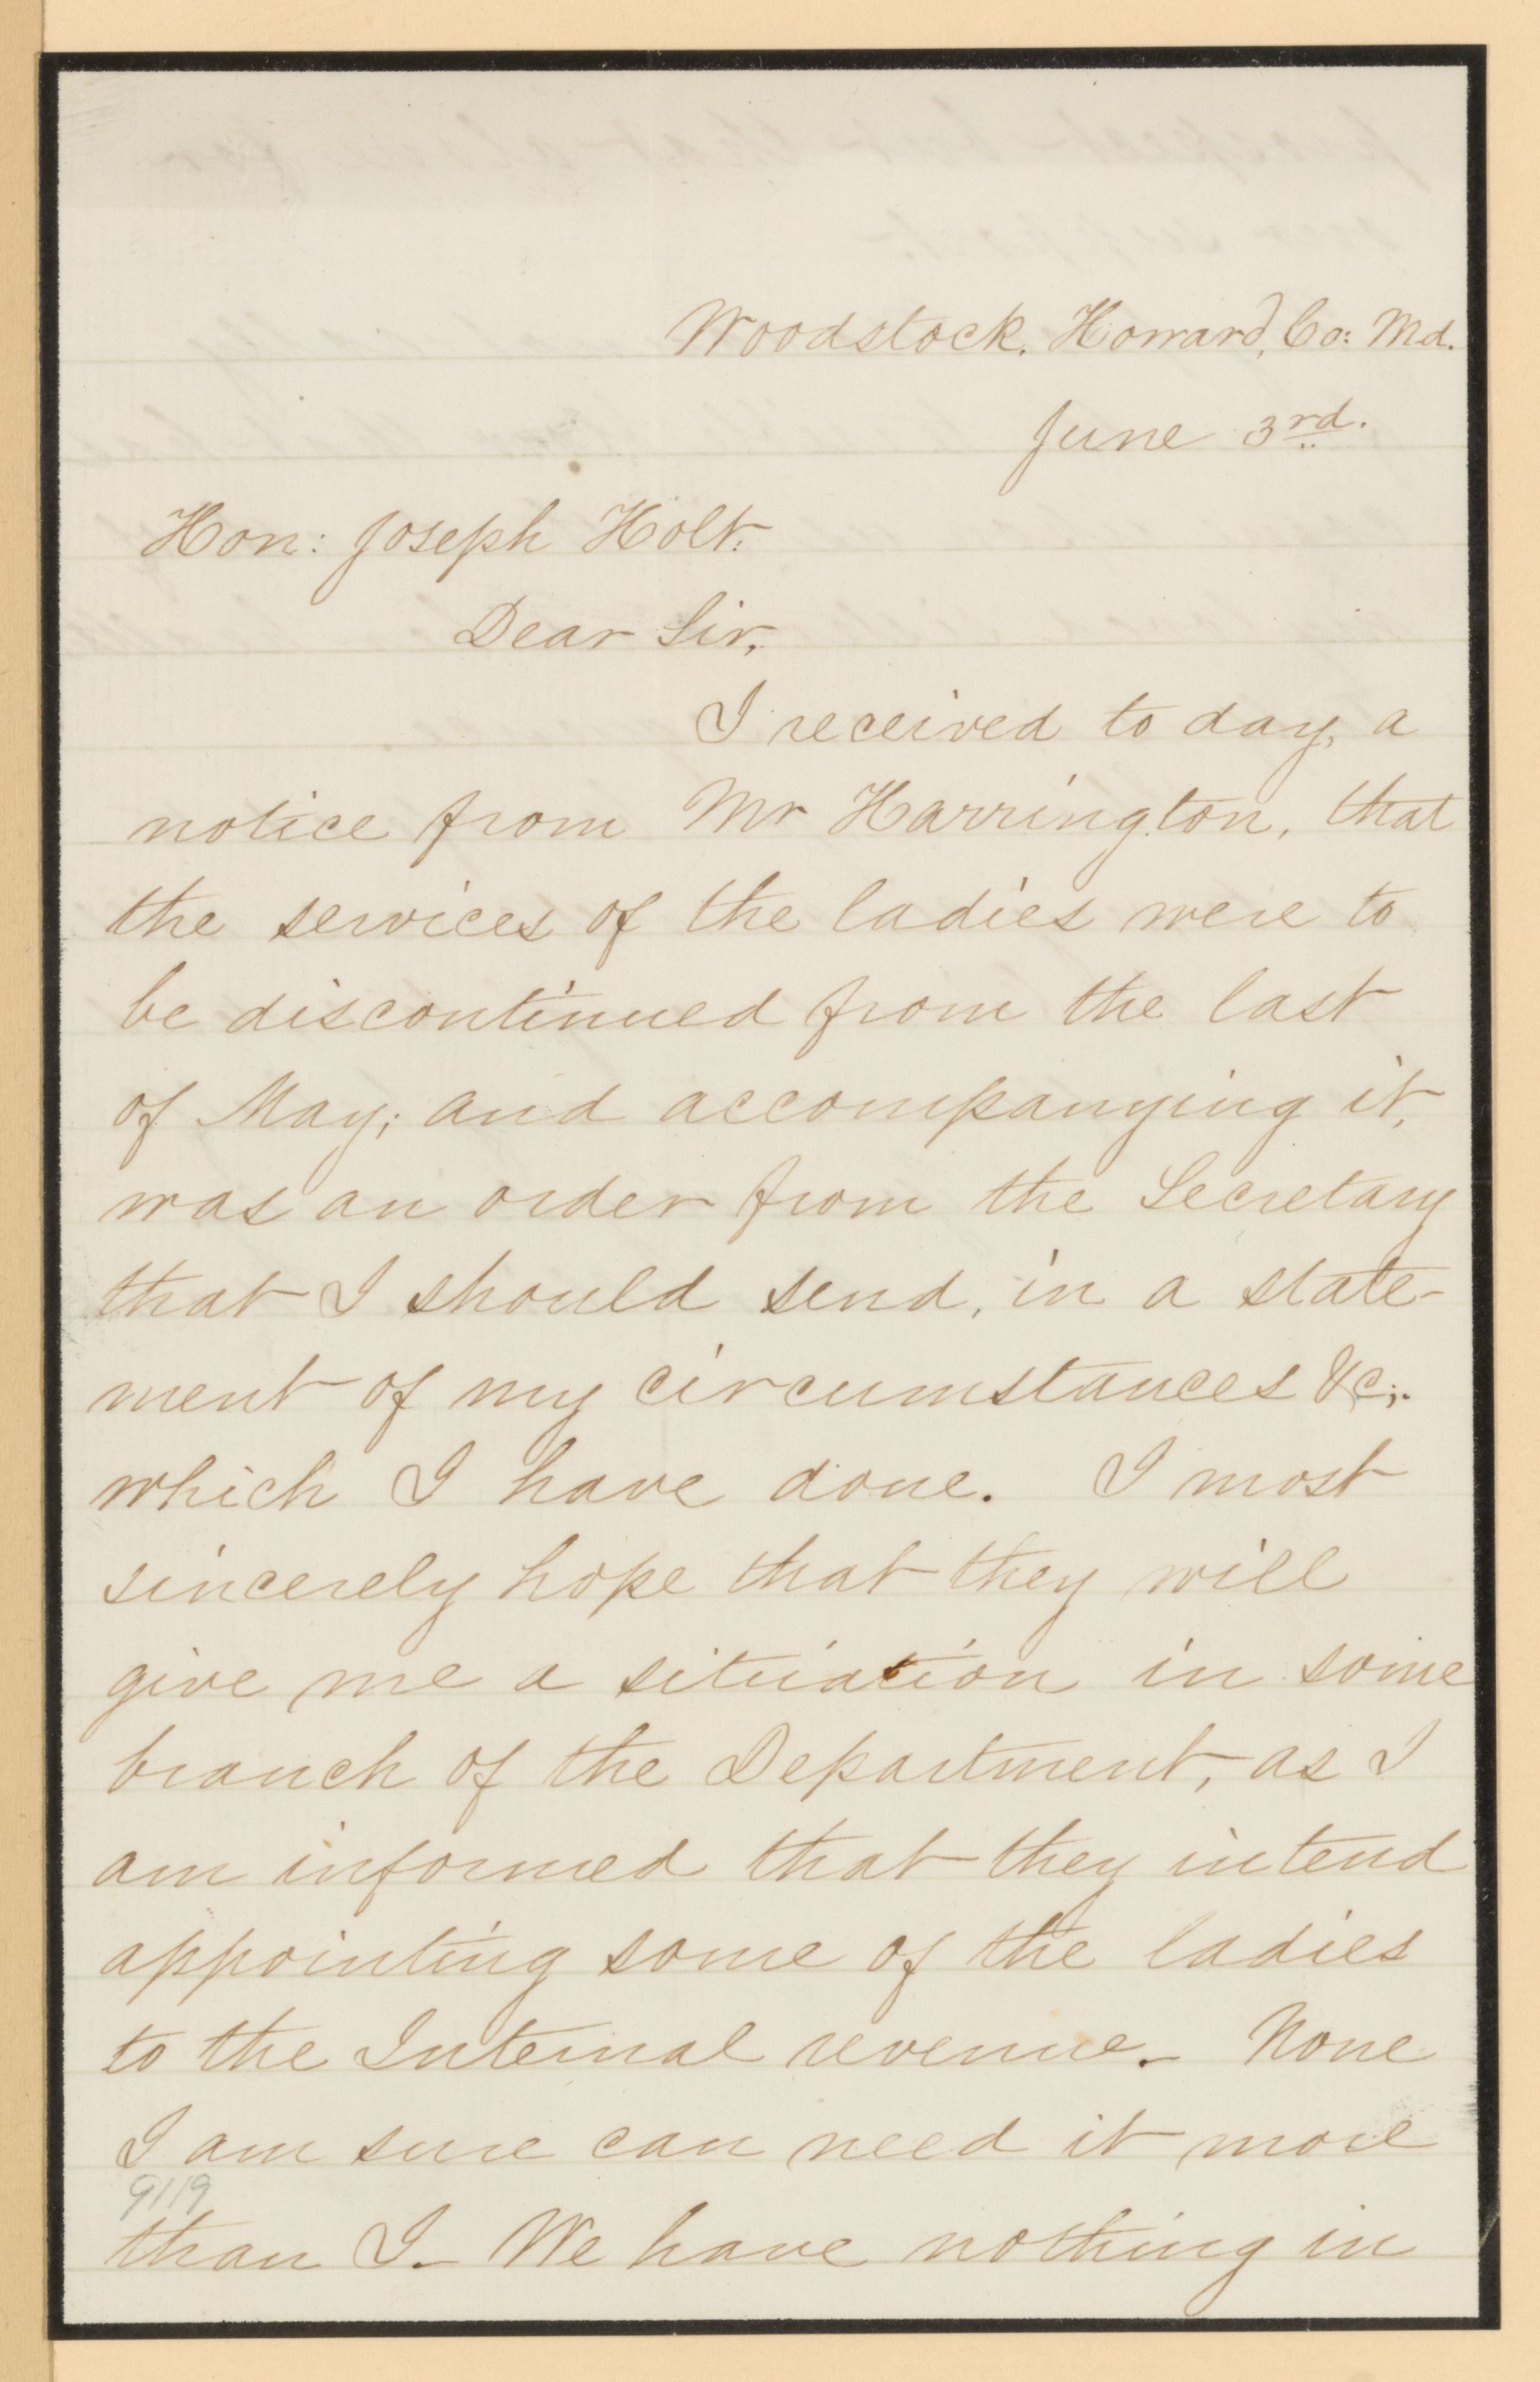 Woodstock. Howard, Co: Md.
June 3rd.
Hon: Joseph Holt.
Dear Sir,
I received to day, a
notice from Mr Harrington, that
the services of the ladies were to
be discontinued from the last
of May; and accompanying it,
was an order from the Secretary
that I should send, in a state-
ment of my circumstances &c;.
which I have done. I most
sincerely hope that they will
give me a situation in some
branch of the Department, as I
am informed that they intend
appointing some of the ladies
to the Internal revenue. None
I am sure can need it more
9119
than I. We have nothing in